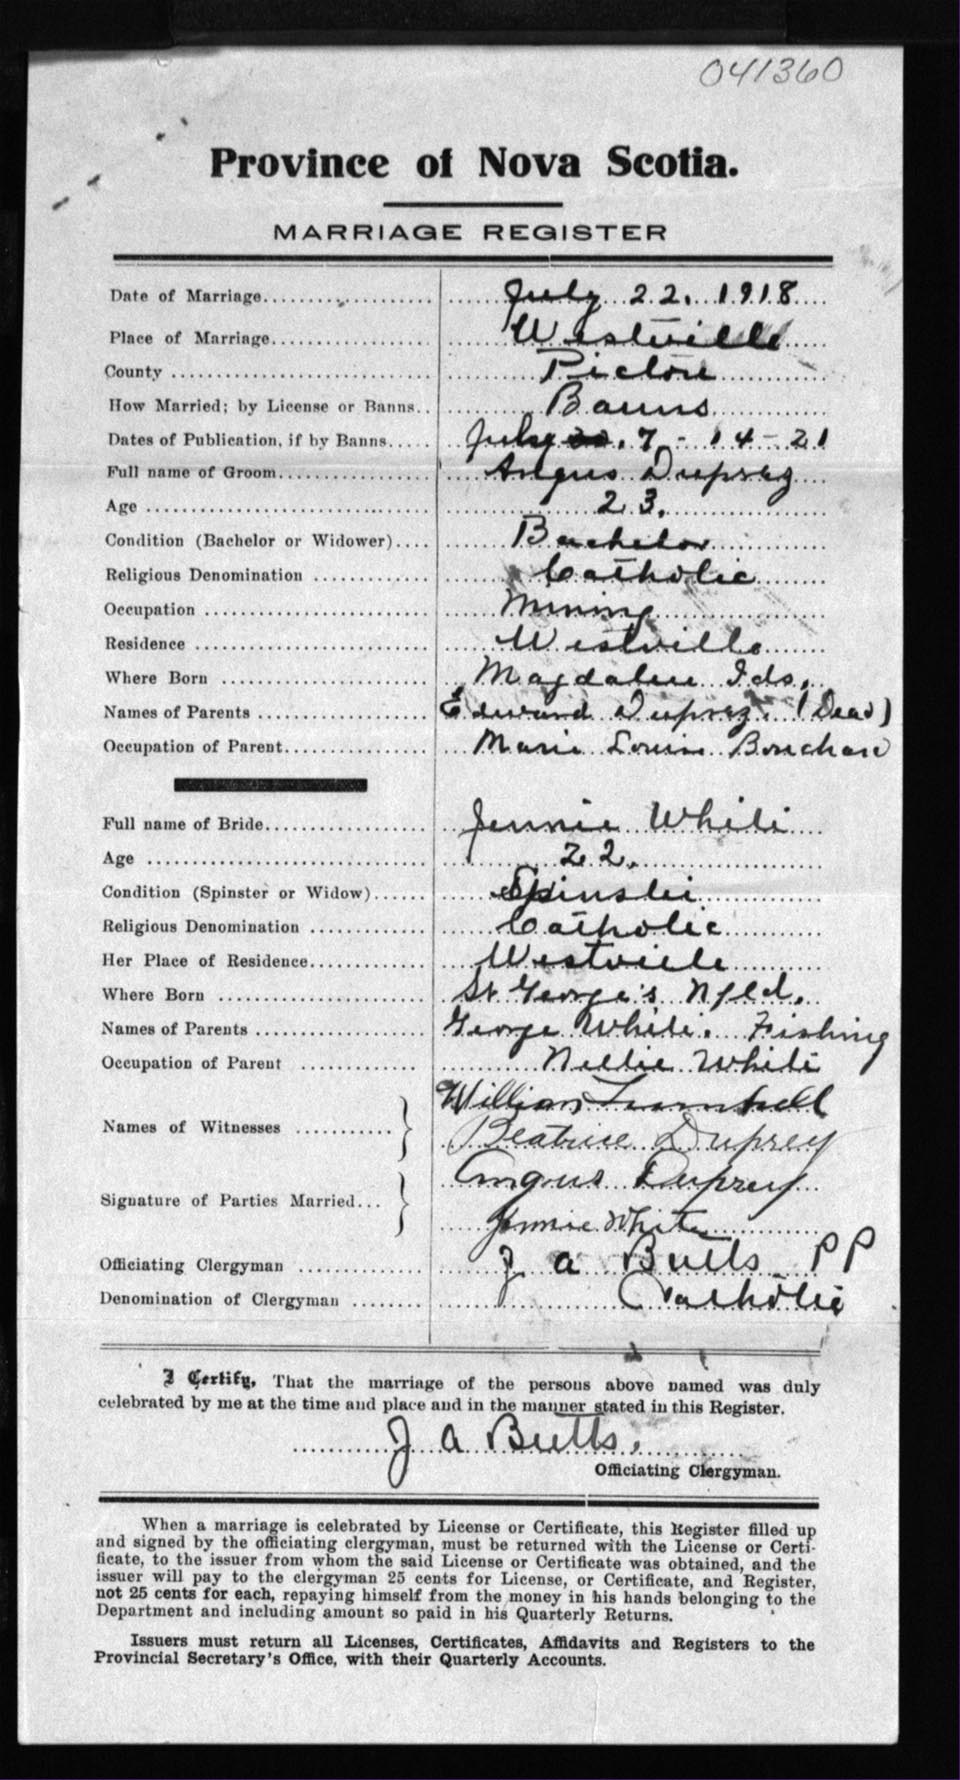 041360
Province of Nova Scotia.
MARRIAGE REGISTER
Date of Marriage.................... July 22. 1918
Place of Marriage................... Westville
County ............................. Pictou
How Married; by License or Banns.. Banns
Dates of Publication, if by Banns..... July 7 - 14 - 21
Full name of Groom................. Angus Duprez
Age ................................ 23.
Condition (Bachelor or Widower).... Bachelor
Religious Denomination ............. Catholic
Occupation ......................... Mining
Residence .......................... Westville
Where Born ........................ Magdalen Ids.
Names of Parents ................... Edward Duprez. (Dead)
Occupation of Parent................ Marie Louise Bouchard
Full name of Bride.................. Jennie White
Age ................................ 22.
Condition (Spinster or Widow)...... Spinster
Religious Denomination ............. Catholic
Her Place of Residence............. Westville
Where Born ........................ St George's Nfld.
Names of Parents ................... George White. Fishing
Occupation of Parent ............. Nellie White
Names of Witnesses ........... William Turnbull
Beatrice Duprey
Signature of Parties Married... Angus Duprey
Jennie White
Officiating Clergyman .............. J A Butts PP
Denomination of Clergyman ........ Catholic
I Certify, That the marriage of the persons above named was duly
celebrated by me at the time and place and in the manner stated in this Register.
J A Butts.
Officiating Clergyman.
When a marriage is celebrated by License or Certificate, this Register filled up
and signed by the officiating clergyman, must be returned with the License or Certi-
ficate, to the issuer from whom the said License or Certificate was obtained, and the
issuer will pay to the clergyman 25 cents for License, or Certificate, and Register,
not 25 cents for each, repaying himself from the money in his hands belonging to the
Department and including amount so paid in his Quarterly Returns.
Issuers must return all Licenses, Certificates, Affidavits and Registers to the
Provincial Secretary's Office, with their Quarterly Accounts.